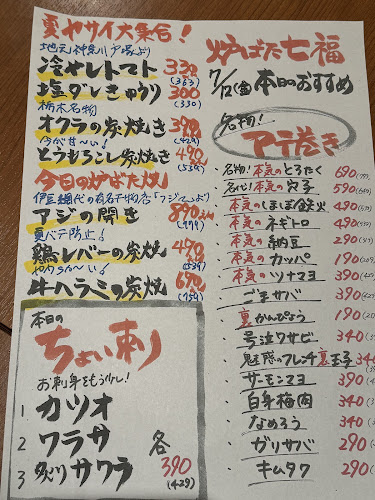 夏ヤサイ大集合!
地元神奈川戸塚より
冷やしトマト 330
(363)
塩ダレきゅうり 300
(330)
栃木名物
オクラの炭焼き 390
(429)
今が甘〜い!
とうもろこし炭焼き 490
(539)
今日の炉ばた焼
伊豆網代の有名干物店「フジマ」より
アジの開き 890
(979)
夏バテ防止!
鶏レバーの炭焼 490
(539)
牛ハラミの炭焼 690
(759)
本日の
ちょい刺
お刺身をもう少し!
1 カツオ
2 ワラサ
3 炙りサワラ
各
390
(429)
炉ばた七福
7/12(金)本日のおすすめ
名物!
アテ巻き
名物!本気のとろたく 690
名代!本気の穴子 590
本気のしほぼ鉄火 490
本気のネギトロ 490
本気の納豆 290
本気のカッパ 190
本気のツナマヨ 390
ごまサバ 390
裏かんぴょう 190
号泣ワサビ 340
魅惑のフレンチ裏玉子 340
サーモンマヨ 390
白身梅肉 340
なめろう 340
ガリサバ 290
キムタク 290